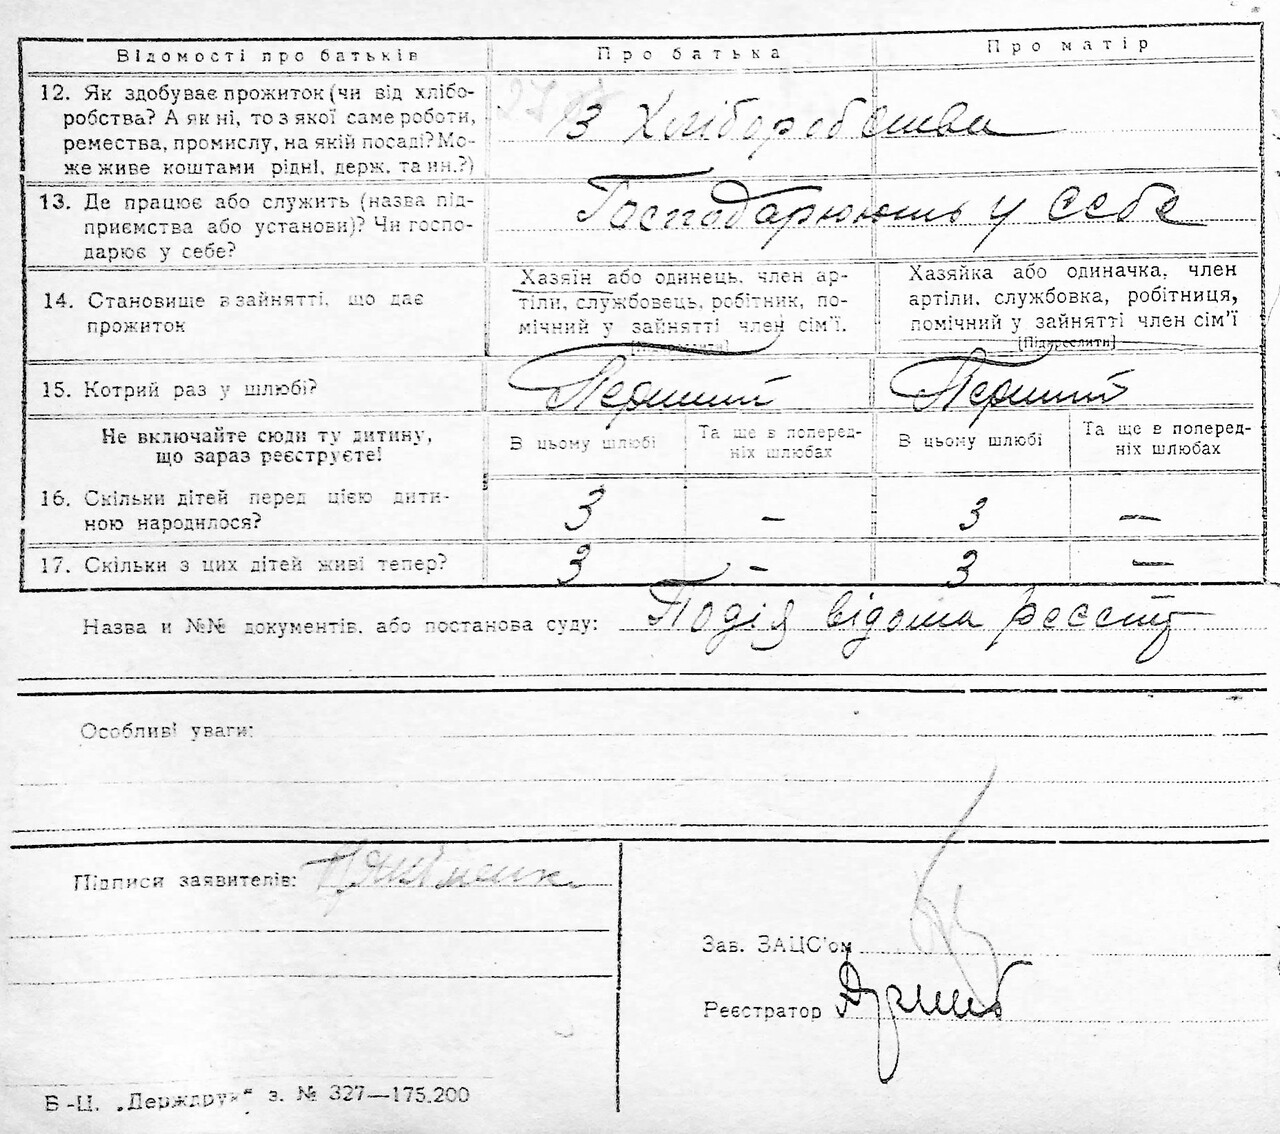 Відомості про батьків Про батька Про матір
12. Як здобуває прожиток (чи від хлібо-
робства? А як ні, то з якої саме роботи,
ремества, промислу, на якій посаді? Мо-
же живе коштами рідні, держ. та ин.?)
З Хліборобства
13. Де працює або служить (назва під-
приємства або установи)? Чи госпо-
дарює у себе?
Господарюють у себе
14. Становище в зайнятті, що дає
прожиток
Хазяїн або одинець, член ар-
тіли, службовець, робітник, по-
мічний у зайнятті член сім'ї.
[Підкреслити]
Хазяйка або одиначка, член
артіли, службовка, робітниця,
помічний у зайнятті член сім'ї
[Підкреслити]
15. Котрий раз у шлюбі? Перший Перший
Не включайте сюди ту дитину,
що зараз реєструєте!
В цьому шлюбі
Та ще в поперед-
ніх шлюбах
В цьому шлюбі
Та ще в поперед-
ніх шлюбах
16. Скільки дітей перед цією дити-
ною народилося?
3 – 3 –
17. Скільки з цих дітей живі тепер? 3 – 3 –
Назва и №№ документів, або постанова суду: Подія відома реєстр
Особливі уваги:
Підписи заявителів:
Зав. ЗАЦС'ом
Реєстратор
Б-Ц. „Держдрук“ з. № 327—175.200